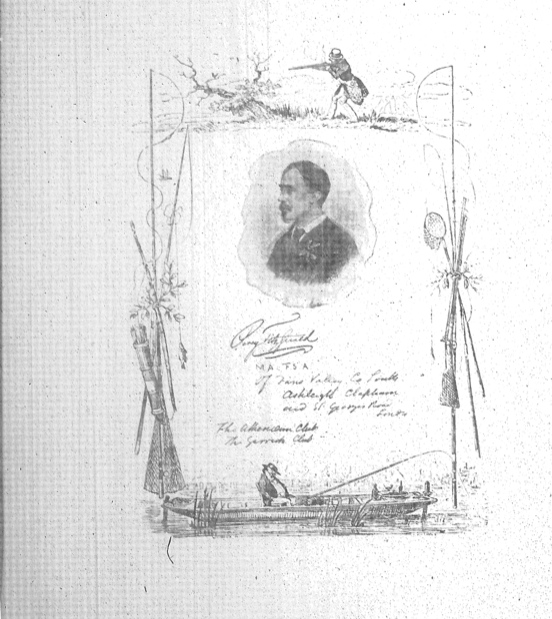 Percy Fitzgerald
M.A. F.S.A.
Of Fane Valley Co Louth
Ashleigh
and St. Georges
The Athenaeum Club
The Garrick Club